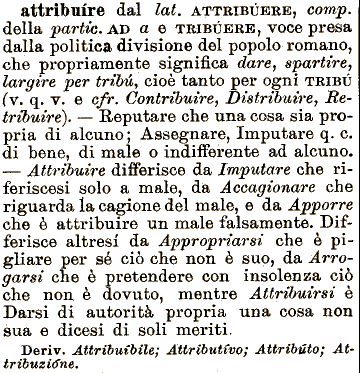 attribuíre dal lat. ATTRIBÚERE, comp.
della partic. AD a e TRIBÚERE, voce presa
dalla politica divisione del popolo romano,
che propriamente significa dare, spartire,
largire per tribú, cioè tanto per ogni TRIBÚ
(v. q. v. e cfr. Contribuire, Distribuire, Re-
tribuire). — Reputare che una cosa sia pro-
pria di alcuno; Assegnare, Imputare q. c.
di bene, di male o indifferente ad alcuno.
— Attribuire differisce da Imputare che ri-
feriscesi solo a male, da Accagionare che
riguarda la cagione del male, e da Apporre
che è attribuire un male falsamente. Dif-
ferisce altresí da Appropriarsi che è pi-
gliare per sé ciò che non è suo, da Arro-
garsi che è pretendere con insolenza ciò
che non è dovuto, mentre Attribuirsi è
Darsi di autorità propria una cosa non
sua e dicesi di soli meriti.
Deriv. Attribuíbile; Attributívo; Attribúto; At-
tribuzióne.